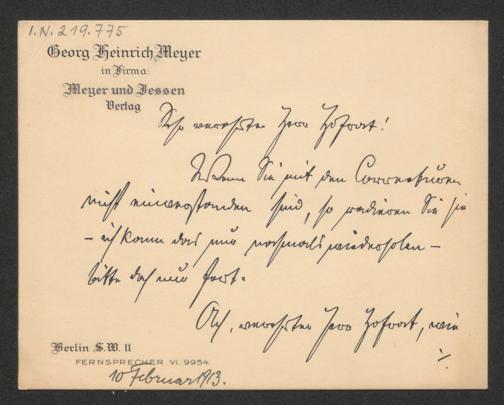 I.N. 219.775
Georg Heinrich Meyer
in Firma:
Meyer und Jessen
Verlag
Sehr verehrter Herr Hofrat!
Wenn Sie mit den Correcturen
nicht einverstanden sind, so radieren Sie sie
– ich kann das nur nochmals wiederholen –
bitte doch nur fort.
Ach, verehrter Herr Hofrat, wie
Berlin S.W. 11
FERNSPRECHER VI. 9954.
10 Februar 1913.